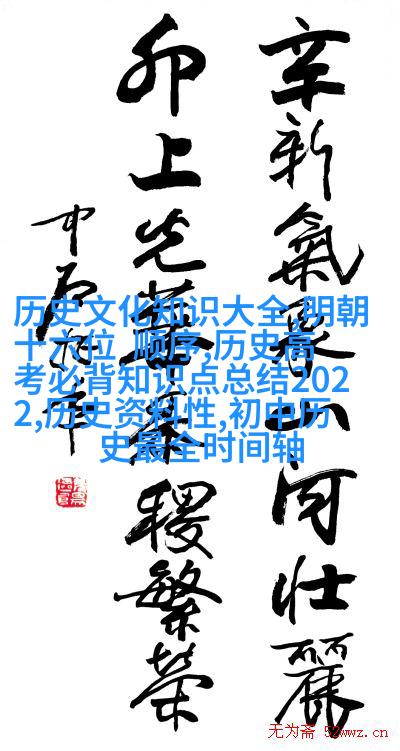 辛新氣象山河壮麗
卯上光華稷繁荣
中石
历史文化知识大全,明朝
十六位 顺序,历史高
考必背知识点总结202
2,历史资料性,初中历
史最全时间轴
无为斋 52wwz.cn